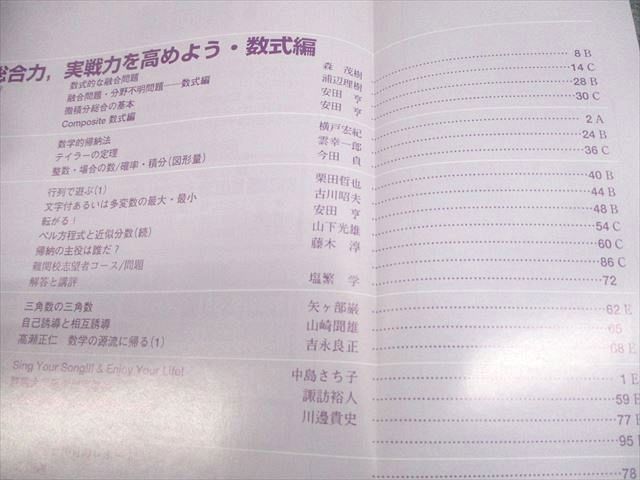 総合力，実戦力を高めよう・数式編
数式的な融合問題 森 茂樹 8 B
融合問題・分野不明問題──数式編 浦辺理樹 14 C
微積分総合の基本 安田 亨 28 B
Composite 数式編 安田 亨 30 C
数学的帰納法 横戸宏紀 2 A
テイラーの定理 雲幸一郎 24 B
整数・場合の数/確率・積分（図形量） 今田 貞 36 C
行列で遊ぶ(1) 栗田哲也 40 B
文字付あるいは多変数の最大・最小 古川昭夫 44 B
転がる！ 安田 亨 48 B
ペル方程式と近似分数(続) 山下光雄 54 C
帰納の主役は誰だ？ 藤木 淳 60 C
難関校志望者コース/問題 86 C
解答と講評 塩繁 学 72
三角数の三角数 矢ヶ部巌 62 E
自己誘導と相互誘導 山崎聞雄 65
高瀬正仁 数学の源流に帰る(1) 吉永良正 68 E
Sing Your Song!!! & Enjoy Your Life! 中島さち子 1 E
諏訪裕人 59 E
川邊貴史 77 E
95 E
78